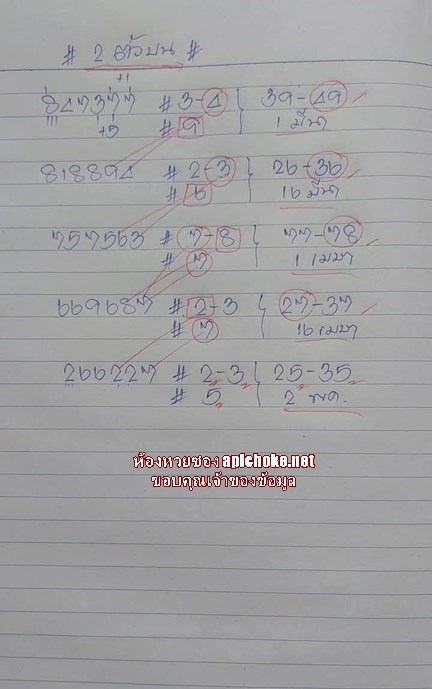 # 2 ตัวบน #
+1
847377 # 3-4 39-49
+5 # 9 1 มีนา
818894 # 2-3 26-36
# 6 16 มีนา
757563 # 7-8 77-78
# 7 1 เมษา
669687 # 2-3 27-37
# 7 16 เมษา
266227 # 2-3 25-35
# 5 2 พค.
ห้องหวยซอง apichoke.net
ขอบคุณเจ้าของข้อมูล